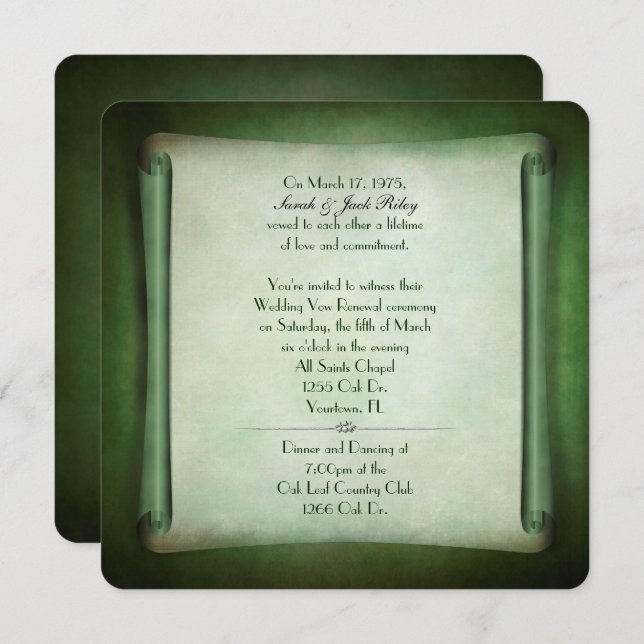 On March 17, 1975,
Sarah & Jack Riley
vowed to each other a lifetime
of love and commitment.
You're invited to witness their
Wedding Vow Renewal ceremony
on Saturday, the fifth of March
six o'clock in the evening
All Saints Chapel
1255 Oak Dr.
Yourtown, FL
Dinner and Dancing at
7:00pm at the
Oak Leaf Country Club
1266 Oak Dr.